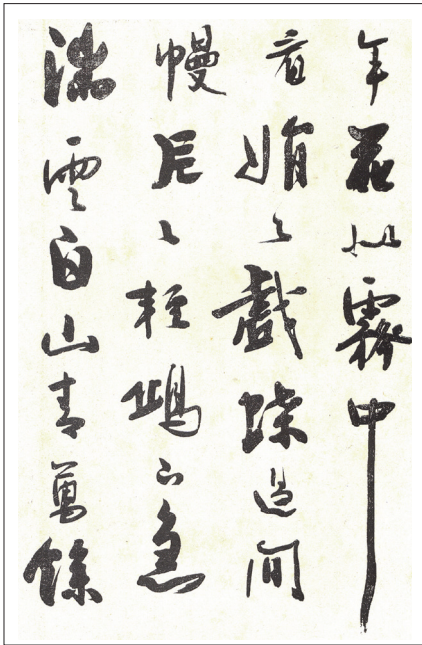 年花似霧中
看娟々戲蝶過閒
幔片々輕鷗下急
湍雲白山青萬餘